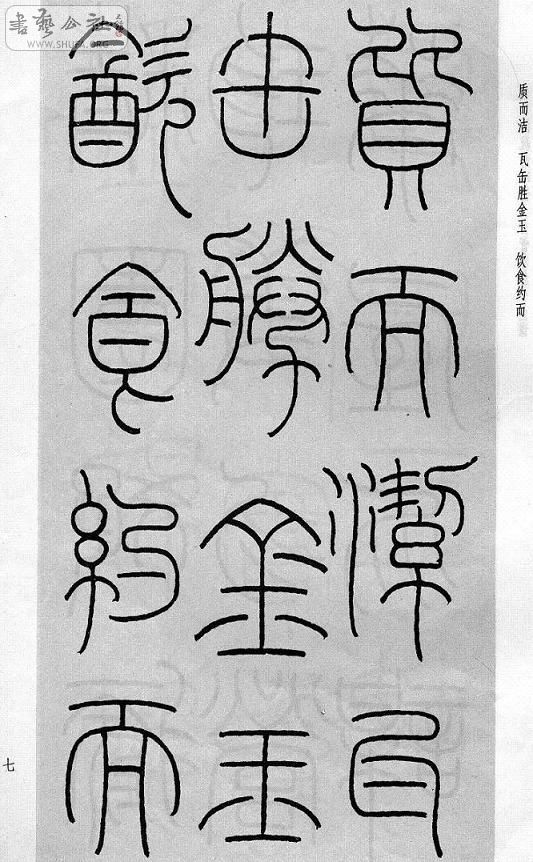 質而潔瓦
缶勝金玉
飲食約而
质而洁 瓦缶胜金玉 饮食约而
七
書藝公社
WWW.SHUFA.ORG